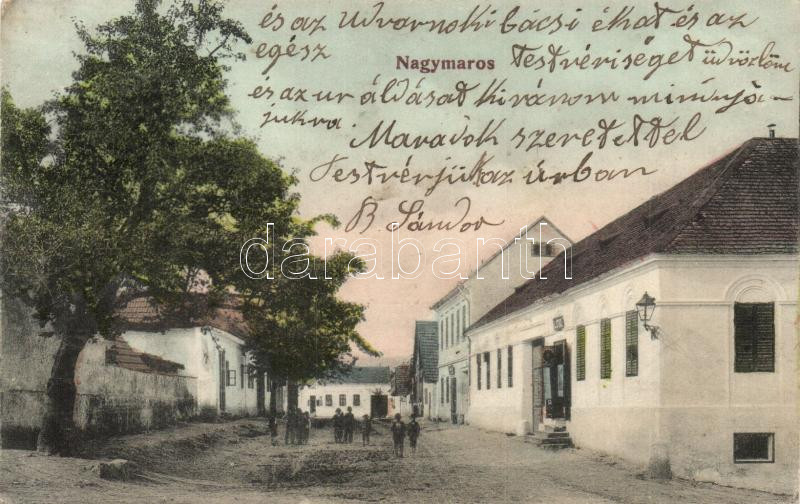 és az Udvarnoki bácsi ékat és az
egész
Nagymaros Testvériséget üdvözlöm
és az ur áldását kivánom mindnyá-
jukra
Maradok szeretettel
Testvérjük az úrban
B Sándor
darabanth